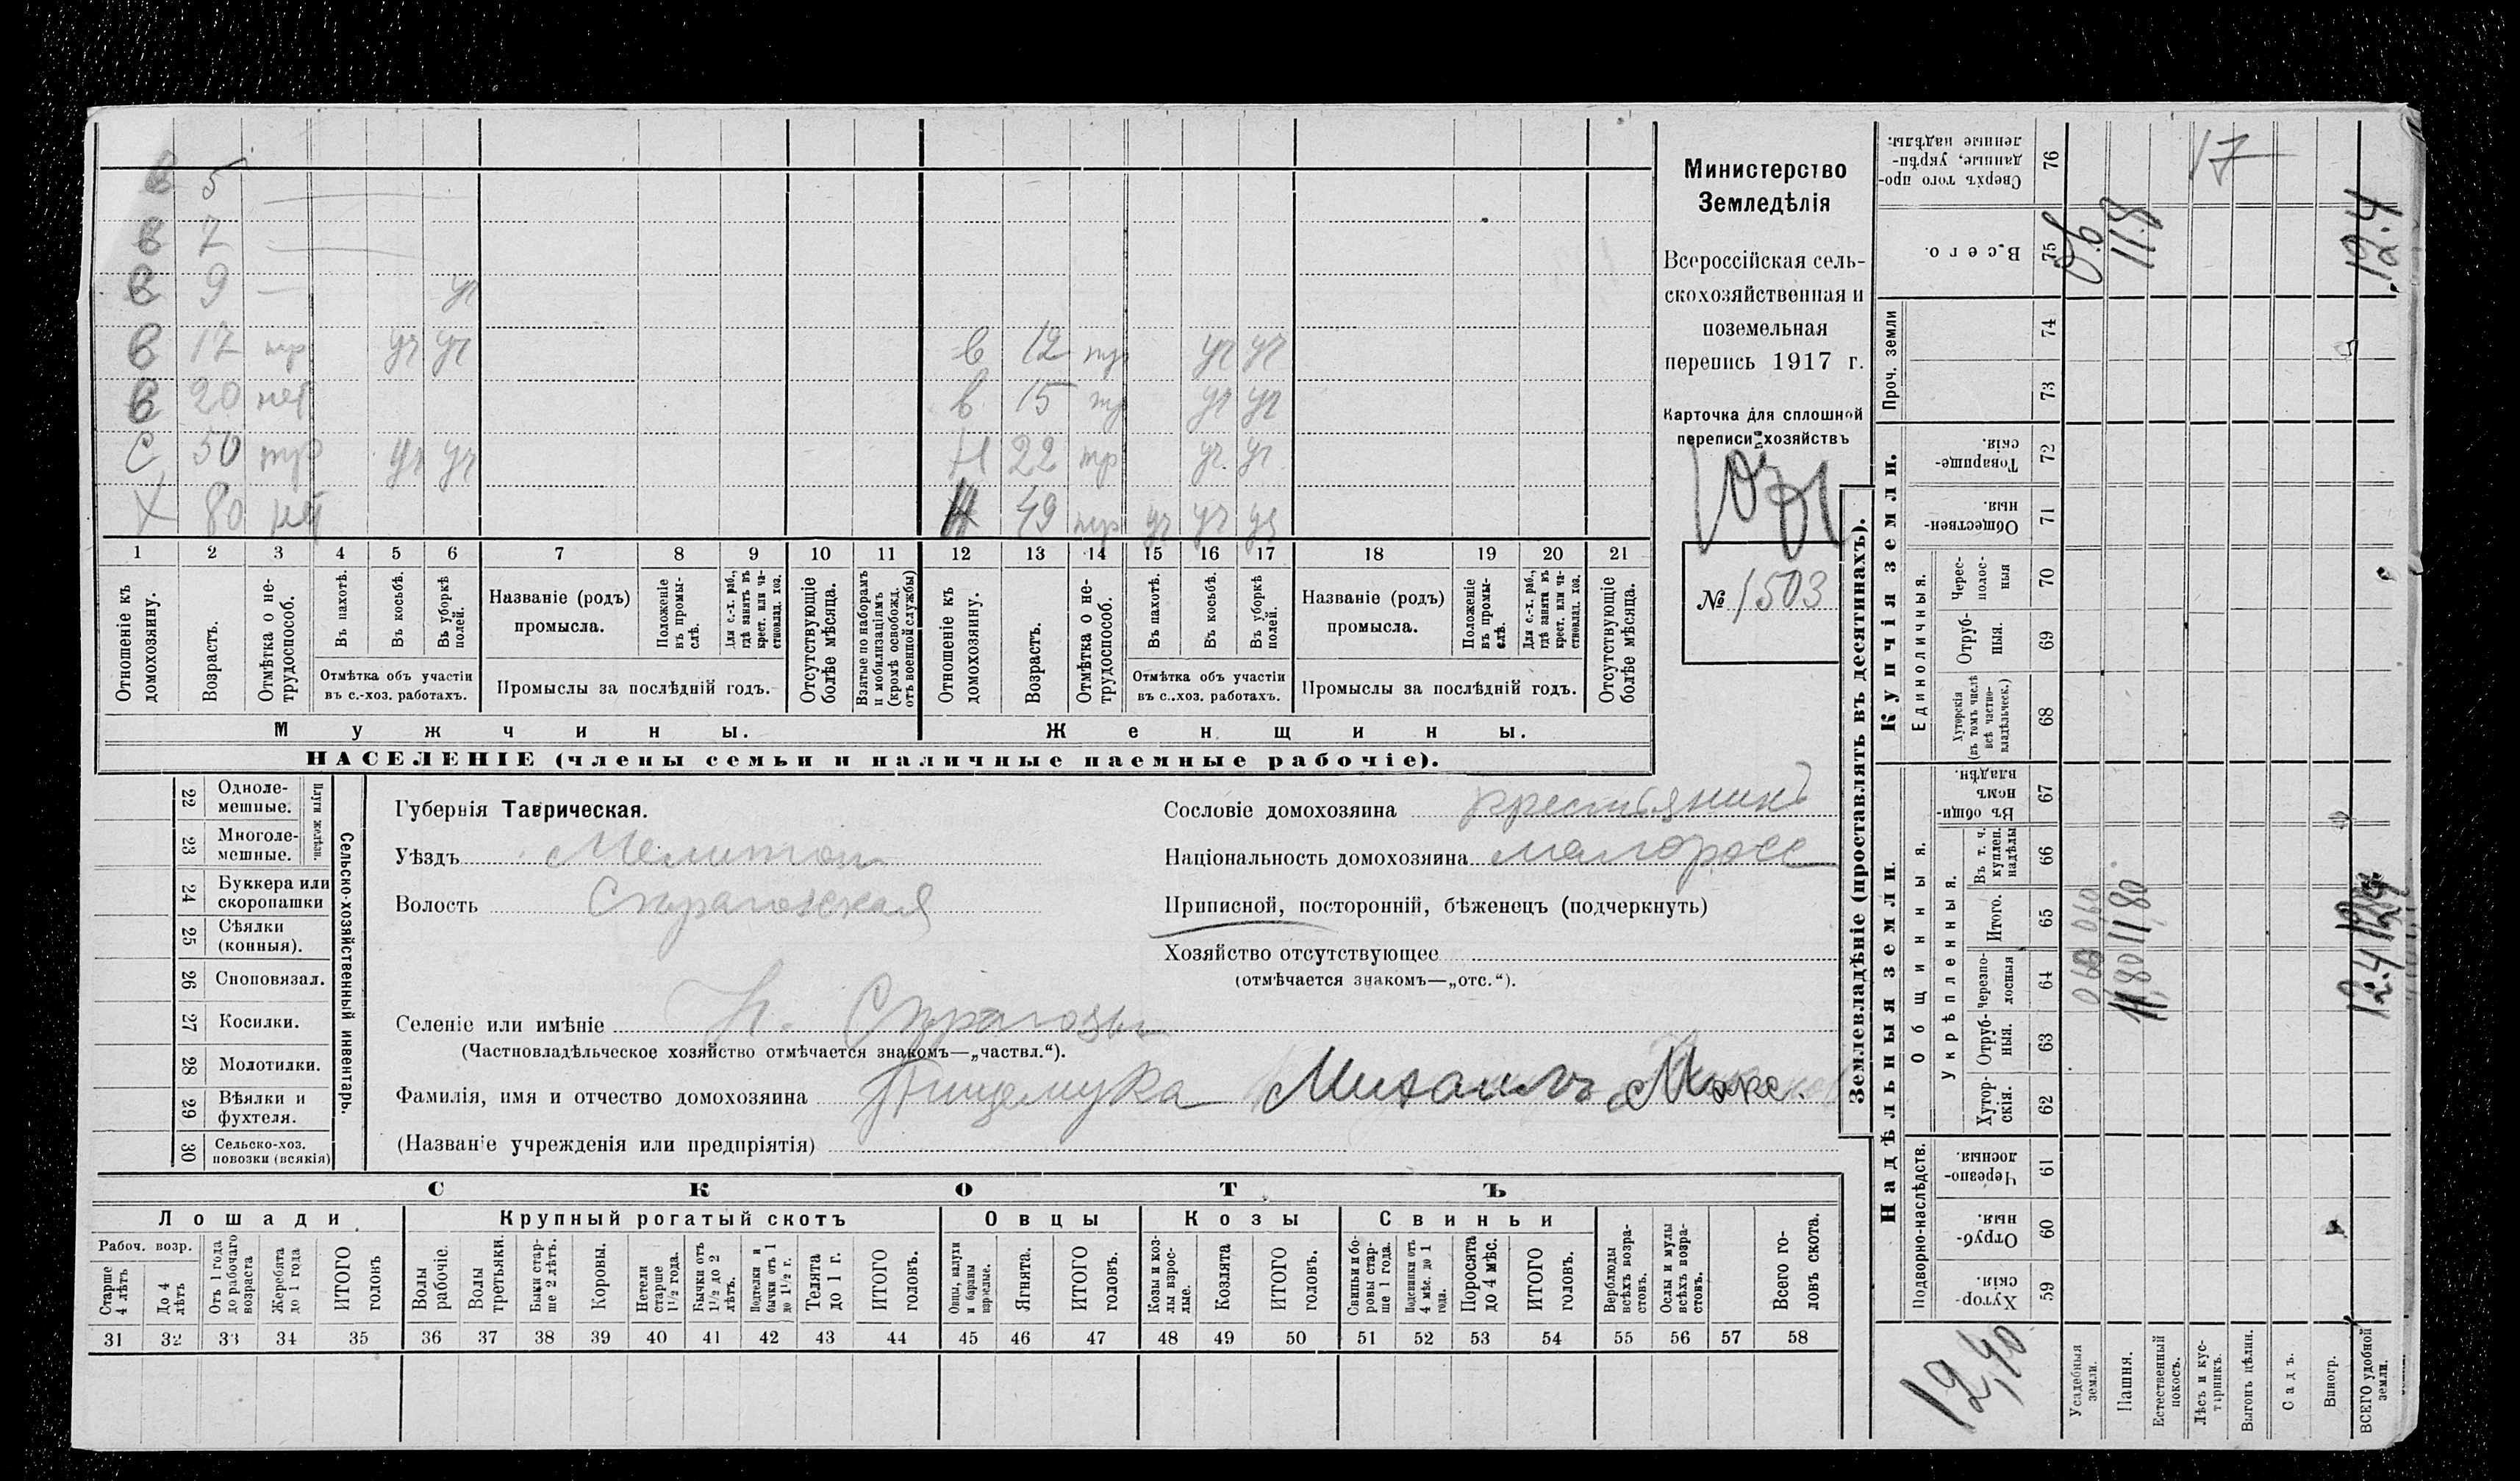 в 5
в 7
в 9 — уч
в 17 тр уч уч
в 20 нет
С 50 тр уч уч
Х 80 нет
в 12 тр уч уч
в 15 тр уч уч
Н 22 тр уч уч
49 тр уч уч уч
1 2 3 4 5 6 7 8 9 10 11 12 13 14 15 16 17 18 19 20 21
Отношеніе къ домохозяину.
Возрастъ.
Отмѣтка о не-трудоспособ.
Въ пахотѣ.
Въ косьбѣ.
Въ уборкѣ полей.
Отмѣтка объ участіи въ с.-хоз. работахъ.
Названіе (родъ) промысла.
Положеніе въ промы-слѣ.
Для с.-х. раб., гдѣ занятъ въ крест. или ча-стновлад. хоз.
Промыслы за послѣдній годъ.
Отсутствующіе болѣе мѣсяца.
Взятые по наборамъ и мобилизаціямъ (кромѣ освобожд. отъ военной службы)
Отношеніе къ домохозяину.
Возрастъ.
Отмѣтка о не-трудоспособ.
Въ пахотѣ.
Въ косьбѣ.
Въ уборкѣ полей.
Отмѣтка объ участіи въ с.-хоз. работахъ.
Названіе (родъ) промысла.
Положеніе въ промы-слѣ.
Для с.-х. раб., гдѣ занята въ крест. или ча-стновлад. хоз.
Промыслы за послѣдній годъ.
Отсутствующіе болѣе мѣсяца.
Мужчины.
Женщины.
НАСЕЛЕНІЕ (члены семьи и наличные наемные рабочіе).
Министерство
Земледѣлія
Всероссійская сель-
скохозяйственная и
поземельная
перепись 1917 г.
Карточка для сплошной
переписи хозяйствъ
№ 1503
22 Одноле-мешные.
23 Многоле-мешные.
Плуги желѣзн.
24 Буккера или скоропашки
25 Сѣялки (конныя).
26 Сноповязал.
27 Косилки.
28 Молотилки.
29 Вѣялки и фухтеля.
30 Сельско-хоз. повозки (всякія)
Сельско-хозяйственный инвентарь.
Губернія Таврическая.
Уѣздъ Мелитоп
Волость
Селеніе или имѣніе Н.
(Частновладѣльческое хозяйство отмѣчается знакомъ—„частвл.“).
Фамилія, имя и отчество домохозяина Михаилъ Макс.
(Названіе учрежденія или предпріятія)
Сословіе домохозяина крестьянинъ
Національность домохозяина малоросс
Приписной, посторонній, бѣженецъ (подчеркнуть)
Хозяйство отсутствующее
(отмѣчается знакомъ—„отс.“).
СКОТЪ
Лошади
Крупный рогатый скотъ
Овцы
Козы
Свиньи
Рабоч. возр.
Старше 4 лѣтъ
До 4 лѣтъ
Отъ 1 года до рабочаго возраста
Жеребята до 1 года
ИТОГО головъ
Волы рабочіе.
Волы третьяки.
Быки стар-ше 2 лѣтъ.
Коровы.
Нетели старше 1½ года.
Бычки отъ 1½ до 2 лѣтъ.
Подтелки и бычки отъ 1 до 1½ г.
Телята до 1 г.
ИТОГО головъ.
Овцы, валухи и бараны взрослые.
Ягнята.
ИТОГО головъ.
Козы и коз-лы взрос-лые.
Козлята
ИТОГО головъ.
Свиньи и бо-ровы стар-ше 1 года.
Подсвинки отъ 4 мѣс. до 1 года.
Поросята до 4 мѣс.
ИТОГО головъ.
Верблюды всѣхъ возра-стовъ.
Ослы и мулы всѣхъ возра-стовъ.
Всего го-ловъ скота.
31 32 33 34 35 36 37 38 39 40 41 42 43 44 45 46 47 48 49 50 51 52 53 54 55 56 57 58
Землевладѣніе (проставлять въ десятинахъ).
Надѣльныя земли.
Купчія земли.
Проч. земли
Сверхъ того про-данные, укрѣп-ленные надѣлы. 76 17
Всего. 75 0.6 11.8 12.4
74
73
Товарище-скія. 72
Обществен-ныя. 71
Единоличныя.
Черес-полос-ныя 70
Отруб-ныя. 69
Хуторскія (въ томъ числѣ всѣ частно-владѣльческ.) 68
Общинныя.
Въ общи-номъ владѣн. 67
Укрѣпленныя.
Въ т. ч. куплен. надѣлы 66
Итого. 65 060 1180
Черезпо-лосныя 64 060 1180 12.4
Отруб-ныя. 63
Хутор-скія. 62
Подворно-наслѣдств.
Черезпо-лосныя. 61
Отруб-ныя. 60
Хутор-скія. 59
12,40
Усадебныя земли.
Пашня.
Естественный покосъ.
Лѣсъ и кус-тарникъ.
Выгонъ цѣлин.
Садъ.
Виногр.
ВСЕГО удобной земли.